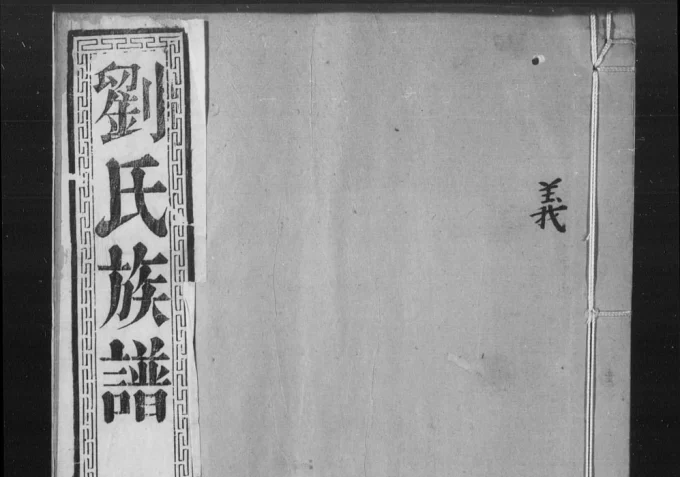 義
劉氏族譜